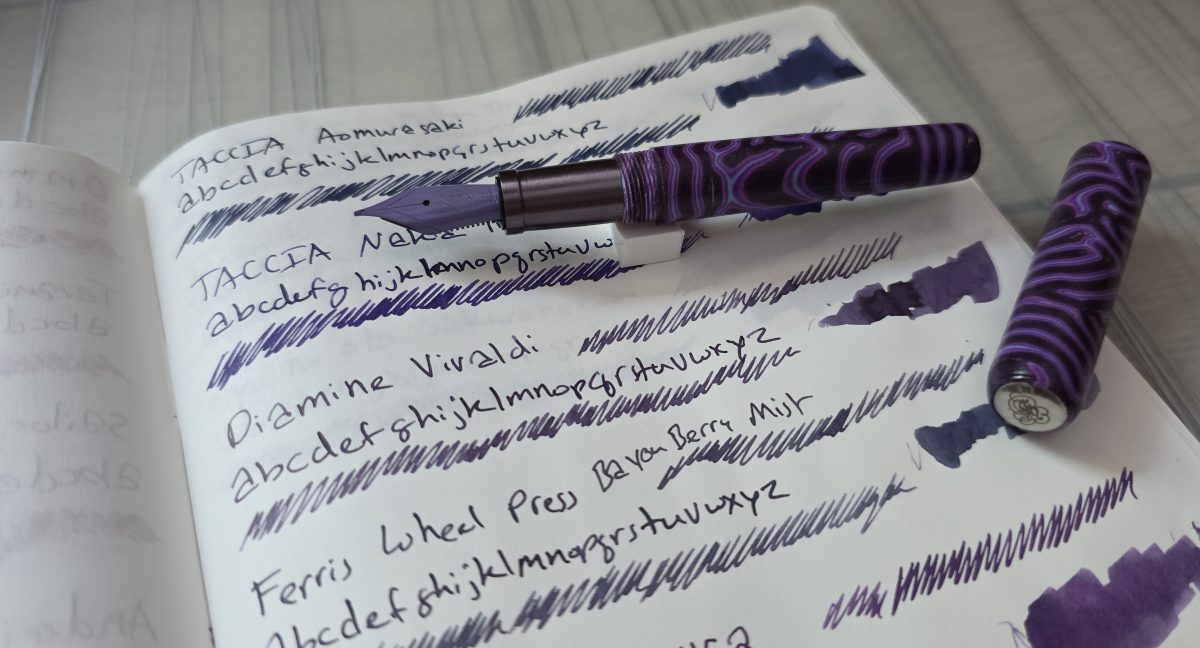 TACCIA Aomurasaki
abcdefghijklmnopqrstuvwxyz
TACCIA
abcdefghijklmnopqrstuvw
Diamine Vivaldi
abcdefghijklmnopqrstuvwxyz
Ferris Wheel Press Bayou Berry Mist
abcdefghijklmnopqrstuvwxyz